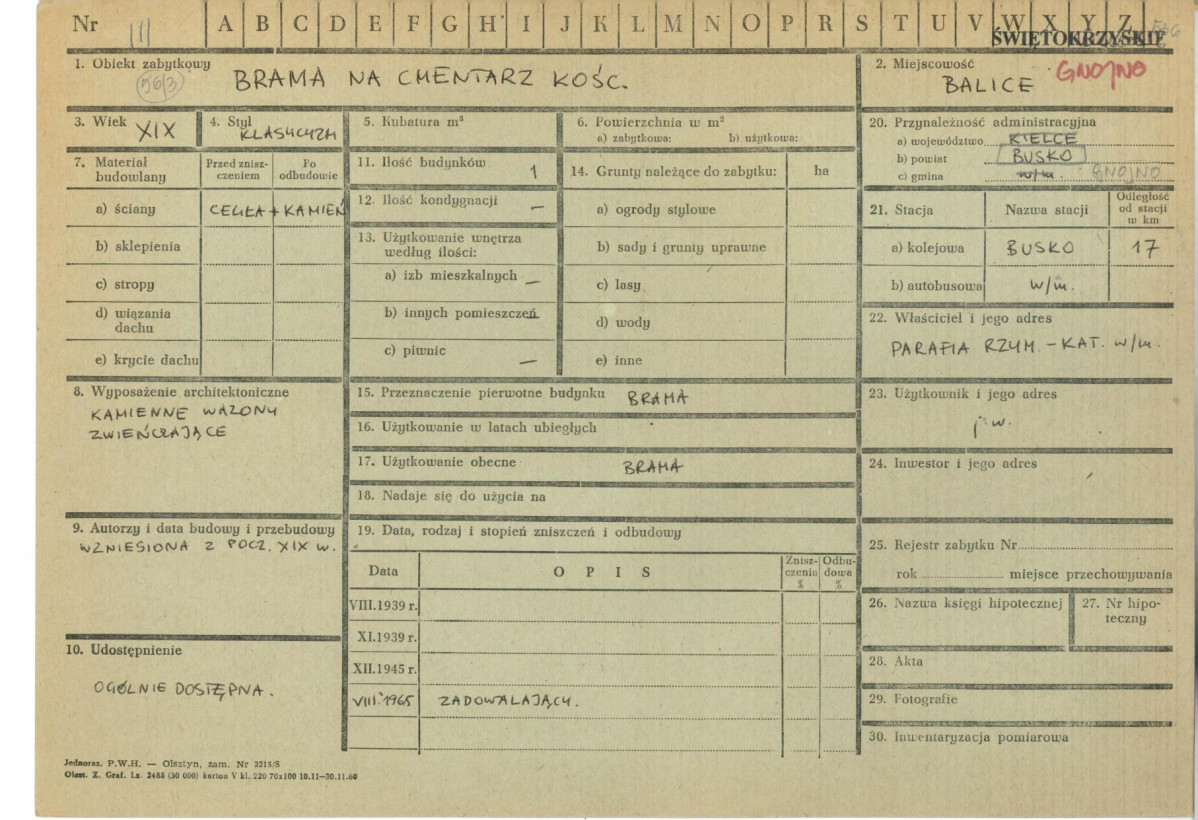 Nr III A B C D E F G H I J K L M N O P R S T U V W X Y Z
ŚWIĘTOKRZYSKIE
1. Obiekt zabytkowy
(56/3)
BRAMA NA CMENTARZ KOŚC.
2. Miejscowość
BALICE
GNOJNO
3. Wiek XIX
4. Styl
KLASYCYZM
5. Kubatura m³
6. Powierzchnia w m²
a) zabytkowa: b) użytkowa:
7. Materiał budowlany
Przed znisz-
czeniem
Po
odbudowie
a) ściany CEGŁA + KAMIEŃ
b) sklepienia
c) stropy
d) wiązania
dachu
e) krycie dachu
11. Ilość budynków 1
12. Ilość kondygnacji —
13. Użytkowanie wnętrza
według ilości:
a) izb mieszkalnych —
b) innych pomieszczeń —
c) piwnic —
14. Grunty należące do zabytku: ha
a) ogrody stylowe
b) sady i grunty uprawne
c) lasy
d) wody
e) inne
20. Przynależność administracyjna
a) województwo KIELCE
b) powiat BUSKO
c) gmina w/m. GNOJNO
21. Stacja
Nazwa stacji
Odległość
od stacji
w km
a) kolejowa BUSKO 17
b) autobusowa w/m.
22. Właściciel i jego adres
PARAFIA RZYM. – KAT. w/m.
8. Wyposażenie architektoniczne
KAMIENNE WAZONY
ZWIEŃCZAJĄCE
15. Przeznaczenie pierwotne budynku BRAMA
16. Użytkowanie w latach ubiegłych
17. Użytkowanie obecne BRAMA
18. Nadaje się do użycia na
23. Użytkownik i jego adres
j.w.
24. Inwestor i jego adres
9. Autorzy i data budowy i przebudowy
WZNIESIONA Z POCZ. XIX w.
10. Udostępnienie
OGÓLNIE DOSTĘPNA.
19. Data, rodzaj i stopień zniszczeń i odbudowy
Data
O P I S
Znisz-
czenia
%
Odbu-
dowa
%
VIII.1939 r.
XI.1939 r.
XII.1945 r.
VIII.1965 ZADOWALAJĄCY.
25. Rejestr zabytku Nr
rok miejsce przechowywania
26. Nazwa księgi hipotecznej
27. Nr hipo-
teczny
28. Akta
29. Fotografie
30. Inwentaryzacja pomiarowa
Jednoraz. P.W.H. — Olsztyn, zam. Nr 3215/S
Olszt. Z. Graf. Lz. 2485 (30 000) karton V kl. 220 70x100 10.11—30.11.60